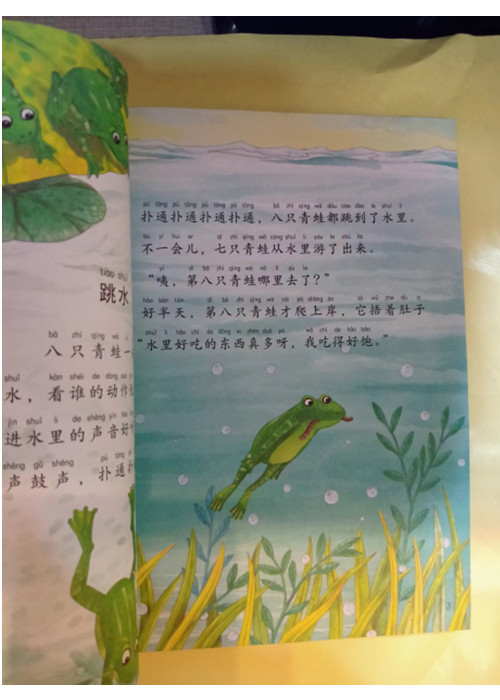 tiào shuǐ
跳水
bā zhī qīng wā
八只青蛙一
shuǐ kàn shéi de dòng zuò
水，看谁的动作
jìn shuǐ lǐ de shēng yīn
进水里的声音好
shēng gǔ shēng pū tōng
声鼓声，扑通
pū tōng pū tōng pū tōng pū tōng bā zhī qīng wā dōu tiào dào le shuǐ lǐ
扑通扑通扑通扑通，八只青蛙都跳到了水里。
bù yí huì er qī zhī qīng wā cóng shuǐ lǐ yóu le chū lái
不一会儿，七只青蛙从水里游了出来。
yí dì bā zhī qīng wā nǎ lǐ qù le
“咦，第八只青蛙哪里去了？”
hǎo bàn tiān dì bā zhī qīng wā cái pá shàng àn tā wǔ zhe dù zi
好半天，第八只青蛙才爬上岸，它捂着肚子
shuǐ lǐ hǎo chī de dōng xi zhēn duō ya wǒ chī de hǎo bǎo
“水里好吃的东西真多呀，我吃得好饱。”
3